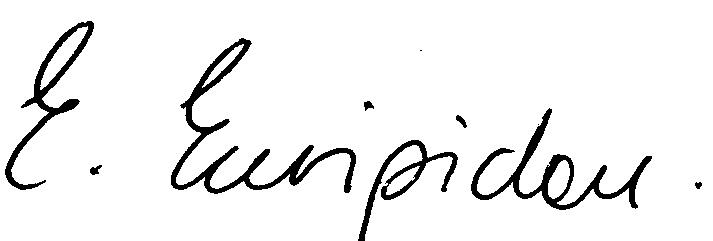 E. Euripidou.